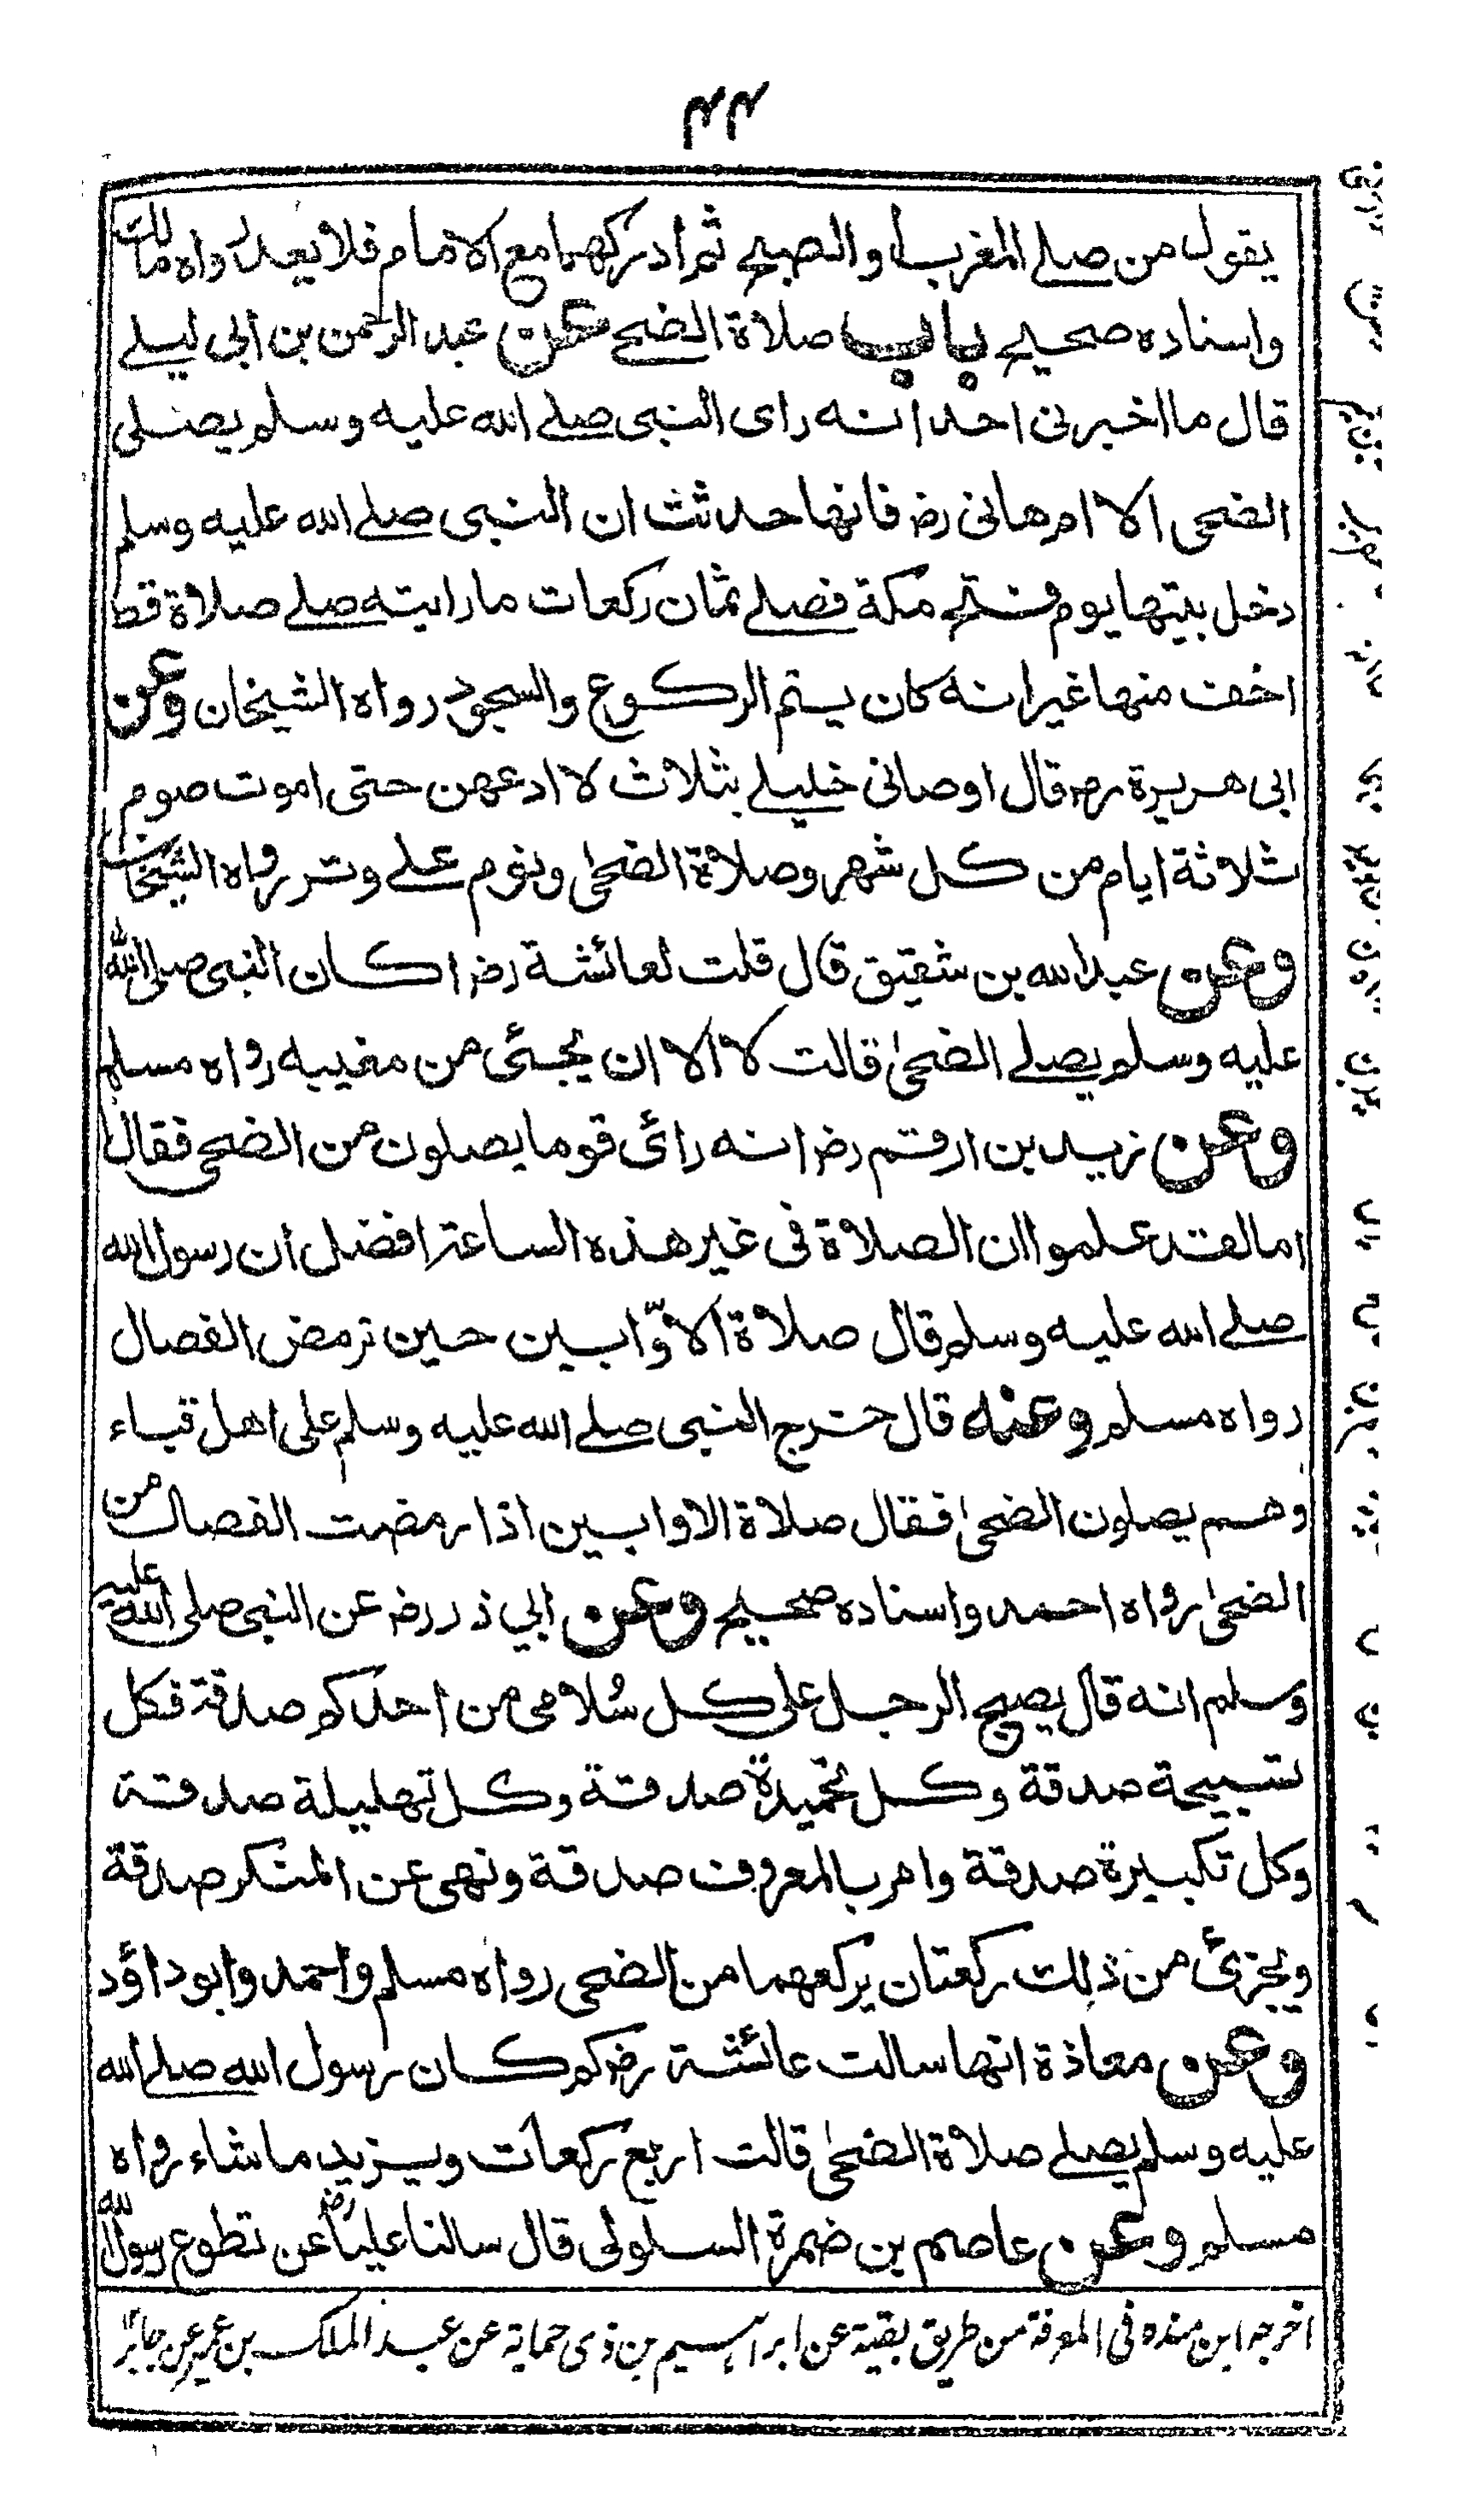 ٣٣
يقول من صلے المغرب او الصبح ثم ادركهما مع الامام فلا يعد رواه مالك
واسناده صحيح باب صلاة الضحے عن عبد الرحمن بن ابى ليلے
قال ما اخبرنى احد انه راى النبى صلے الله عليه وسلم يصلى
الضحى الا ام هانى رض فانها حدثت ان النبى صلے الله عليه وسلم
دخل بيتها يوم فتح مكة فصلے ثمان ركعات ما رايته صلے صلاة قط
اخف منها غير انه كان يتم الركوع والسجود رواه الشيخان وعن
ابى هريرة رض قال اوصانى خليلے بثلاث لا ادعهن حتى اموت صوم
ثلاثة ايام من كل شهر وصلاة الضحىٰ ونوم علے وتر رواه الشيخان
وعن عبد الله بن شقيق قال قلت لعائشة رض اكان النبى صلى الله
عليه وسلم يصلے الضحىٰ قالت لا الا ان يجئى من مغيبه رواه مسلم
وعن زيد بن ارقم رض انه رائى قوما يصلون من الضحى فقال
اما لقد علموا ان الصلاة فى غير هذه الساعة افضل ان رسول الله
صلے الله عليه وسلم قال صلاة الاوّابين حين ترمض الفصال
رواه مسلم وعنه قال خرج النبى صلے الله عليه وسلم على اهل قباء
وهم يصلون الضحىٰ فقال صلاة الاوابين اذا رمضت الفصال من
الضحىٰ رواه احمد واسناده صحيح وعن ابي ذر رض عن النبى صلى الله عليه
وسلم انه قال يصبح الرجل على كل سُلامى من احدكم صدقة فكل
تسبيحة صدقة وكل تحميدة صدقة وكل تهليلة صدقة
وكل تكبيرة صدقة وامر بالمعروف صدقة ونهى عن المنكر صدقة
ويجزئ من ذلك ركعتان يركعهما من الضحى رواه مسلم واحمد وابو داؤد
وعن معاذة انها سالت عائشة رض كم كان رسول الله صلے الله
عليه وسلم يصلے صلاة الضحىٰ قالت اربع ركعات ويزيد ما شاء رواه
مسلم وعن عاصم بن ضمرة السلولى قال سالنا عليا رض عن تطوع رسول الله
اخرجه ابن منده فى المعرفة من طريق بقية عن ابراهيم بن ذى حماية عن عبد الملك بن عمير عن جابر